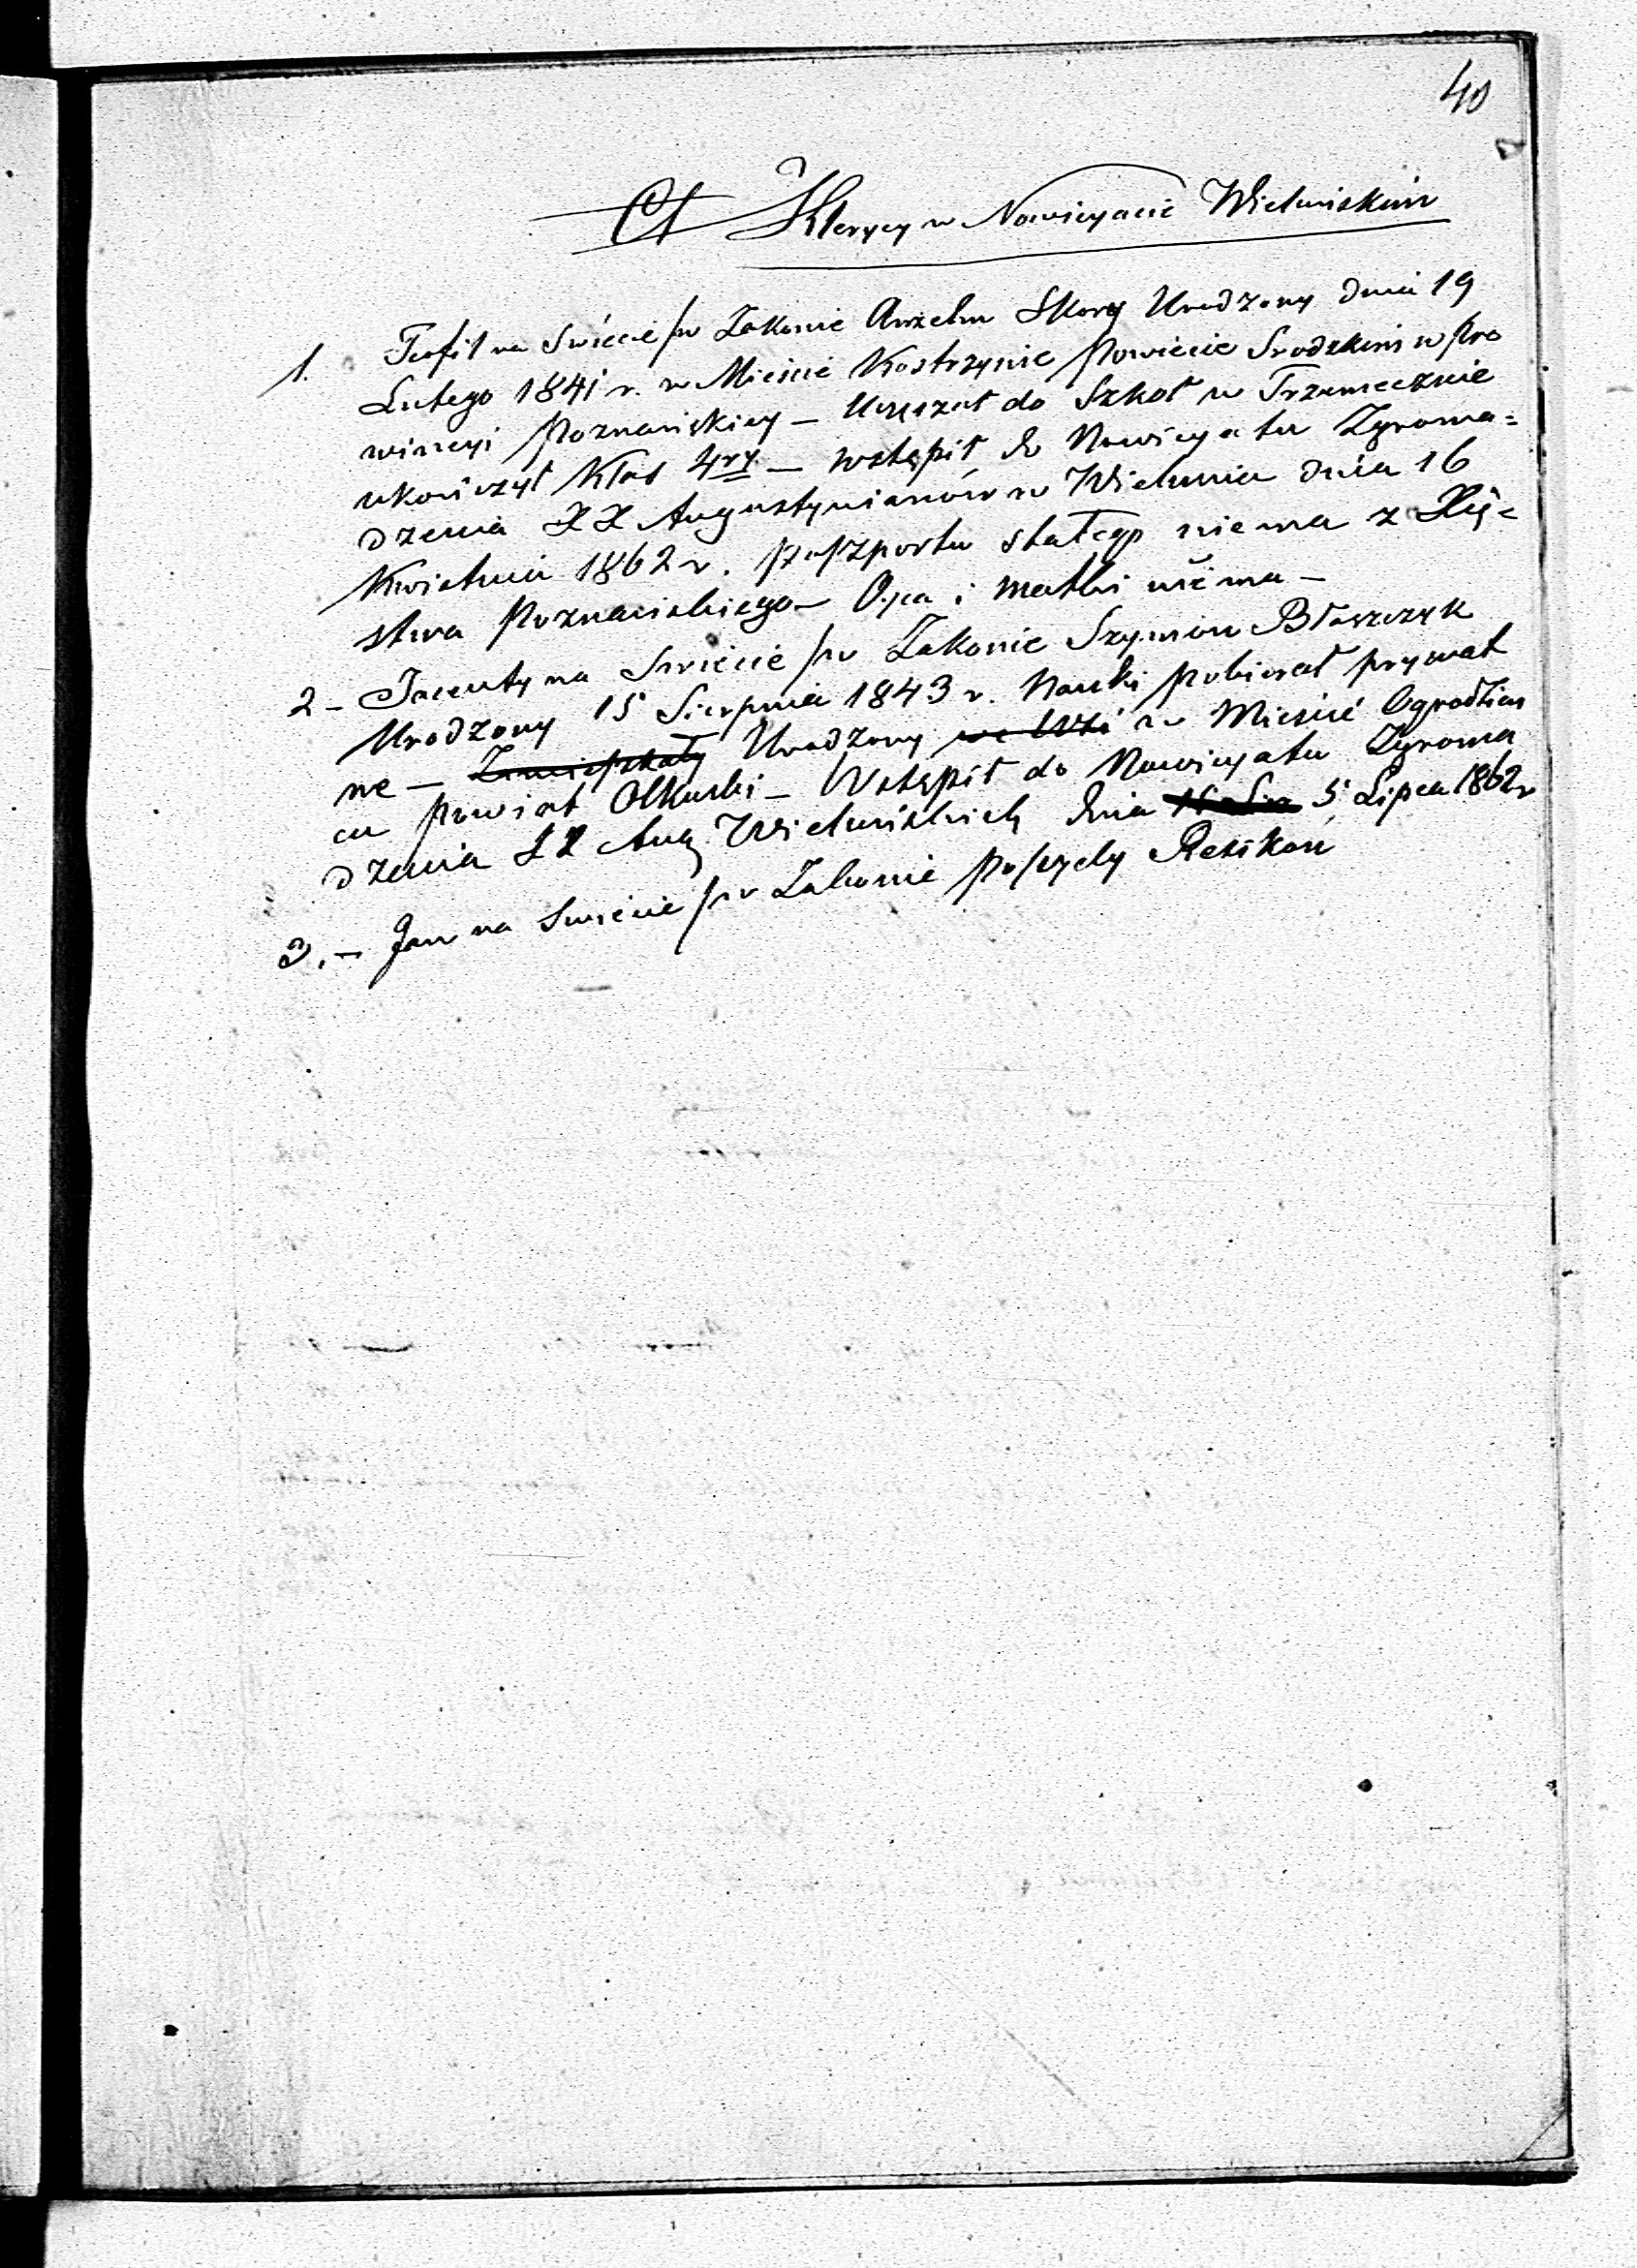 40
Klerycy w Nowicyacie Wieluńskim
1. Teofil na Swiecie /w Zakonie Anzelm Skory Urodzony dnia 19
Lutego 1841 r. w Mieście Kostrzynie Powiecie Srodzkim w Pro
wincyi Poznańskiey – Uczęszał do Szkoł w Trzemesznie
ukończył Klas 4ry – wstąpił do Nowicyatu Zgroma=
dzenia XX Augustyianów w Wieluniu dnia 16
Kwietnia 1862 r. Paszportu stałego niema z Xię=
stwa Poznańskiego – Oyca i Matki niema –
2 – Jacenty na Swiecie /w Zakonie Szymon Błaszczyk
Urodzony 15 Sierpnia 1843 r. Nauki pobierał prywat
ne – Zamieszkały Urodzony we Wsi w Mieście Ogrodzień
cu powiat Olkuski – Wstąpił do Nowicyatu Zgroma
dzenia XX Aug Wieluńskich dnia 5 Lipca 1862 r
3. – Jan na Swiecie /w Zakonie Possydy